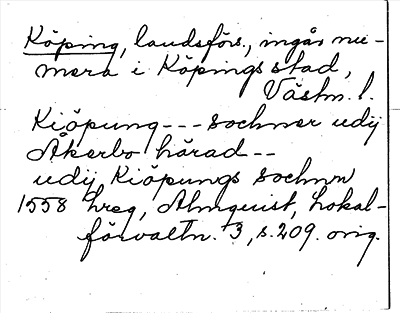 Köping, landsförs., ingår nu-
mera i Köpings stad,
Västm. l.
Kiöpung --- sochner udij
Åkerbo härad --
udij Kiöpungs sochnn
1558 hreg, Almquist, Lokal-
förvaltn. 3, s. 209. orig.